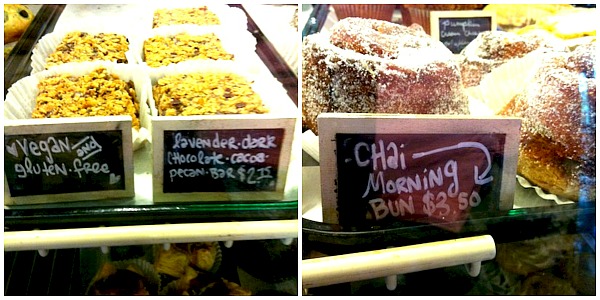 Vegan and
gluten-free
lavender-dark
chocolate-cacao-
pecan-bar $2.75
Pumpkin
Chai
Morning
Bun $3.50